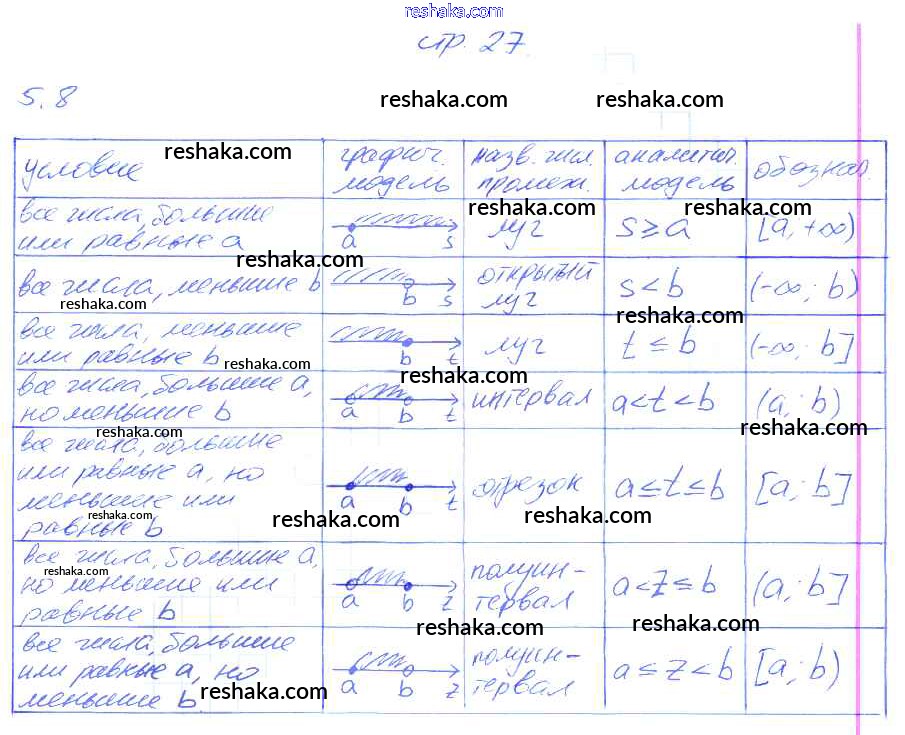 reshaka.com
стр. 27.
5.8
reshaka.com reshaka.com
условие
reshaka.com
графич. модель
назв. чис. промеж.
аналитич. модель
обознач.
reshaka.com reshaka.com
все числа, большие
или равные a
a s
луч
s ≥ a
[a, +∞)
reshaka.com
все числа, меньшие b
b s
открытый
луч
s < b
(-∞; b)
reshaka.com reshaka.com
все числа, меньшие
или равные b
b t
луч
t ≤ b
(-∞; b]
reshaka.com reshaka.com
все числа, большие a,
но меньшие b
a b t
интервал
a < t < b
(a; b)
reshaka.com reshaka.com
все числа, большие
или равные a, но
меньшие или
равные b
a b t
отрезок
a ≤ t ≤ b
[a; b]
reshaka.com reshaka.com
все числа, большие a,
но меньшие или
равные b
reshaka.com
a b z
полуин-
тервал
a < z ≤ b
(a; b]
reshaka.com reshaka.com
все числа, большие
или равные a, но
меньшие b
a b z
полуин-
тервал
a ≤ z < b
[a; b)
reshaka.com